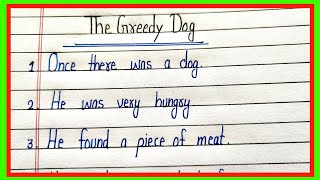 The Greedy Dog
1. Once there was a dog.
2. He was very hungry.
3. He found a piece of meat.